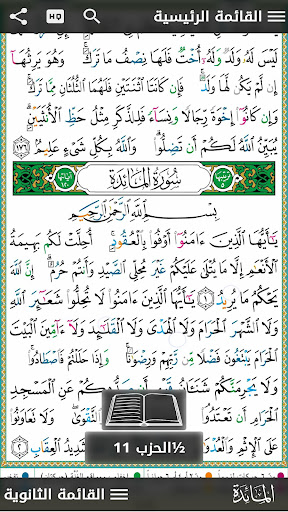 القائمة الرئيسية HQ
لَيْسَ لَهُۥ وَلَدٌ وَلَهُۥٓ أُخْتٌ فَلَهَا نِصْفُ مَا تَرَكَ ۚ وَهُوَ يَرِثُهَآ
إِن لَّمْ يَكُن لَّهَا وَلَدٌ ۚ فَإِن كَانَتَا ٱثْنَتَيْنِ فَلَهُمَا ٱلثُّلُثَانِ مِمَّا تَرَكَ ۚ
وَإِن كَانُوٓا۟ إِخْوَةً رِّجَالًا وَنِسَآءً فَلِلذَّكَرِ مِثْلُ حَظِّ ٱلْأُنثَيَيْنِ ۗ
يُبَيِّنُ ٱللَّهُ لَكُمْ أَن تَضِلُّوا۟ ۗ وَٱللَّهُ بِكُلِّ شَىْءٍ عَلِيمٌۢ ١٧٦
سُورَةُ المَائِدَةِ
بِسْمِ ٱللَّهِ ٱلرَّحْمَٰنِ ٱلرَّحِيمِ
يَٰٓأَيُّهَا ٱلَّذِينَ ءَامَنُوٓا۟ أَوْفُوا۟ بِٱلْعُقُودِ ۚ أُحِلَّتْ لَكُم بَهِيمَةُ
ٱلْأَنْعَٰمِ إِلَّا مَا يُتْلَىٰ عَلَيْكُمْ غَيْرَ مُحِلِّى ٱلصَّيْدِ وَأَنتُمْ حُرُمٌ ۗ إِنَّ ٱللَّهَ
يَحْكُمُ مَا يُرِيدُ ١ يَٰٓأَيُّهَا ٱلَّذِينَ ءَامَنُوا۟ لَا تُحِلُّوا۟ شَعَٰٓئِرَ ٱللَّهِ
وَلَا ٱلشَّهْرَ ٱلْحَرَامَ وَلَا ٱلْهَدْىَ وَلَا ٱلْقَلَٰٓئِدَ وَلَآ ءَآمِّينَ ٱلْبَيْتَ
ٱلْحَرَامَ يَبْتَغُونَ فَضْلًا مِّن رَّبِّهِمْ وَرِضْوَٰنًا ۚ وَإِذَا حَلَلْتُمْ فَٱصْطَادُوا۟ ۚ
وَلَا يَجْرِمَنَّكُمْ شَنَـَٔانُ صَدُّوكُمْ عَنِ ٱلْمَسْجِدِ
ٱلْحَرَامِ أَن تَعْتَدُوا۟ ٱلتَّقْوَىٰ ۖ وَلَا تَعَاوَنُوا۟
عَلَى ٱلْإِثْمِ وَٱلْعُدْوَٰنِ شَدِيدُ ٱلْعِقَابِ ٢
½الحزب 11
القائمة الثانوية المائدة